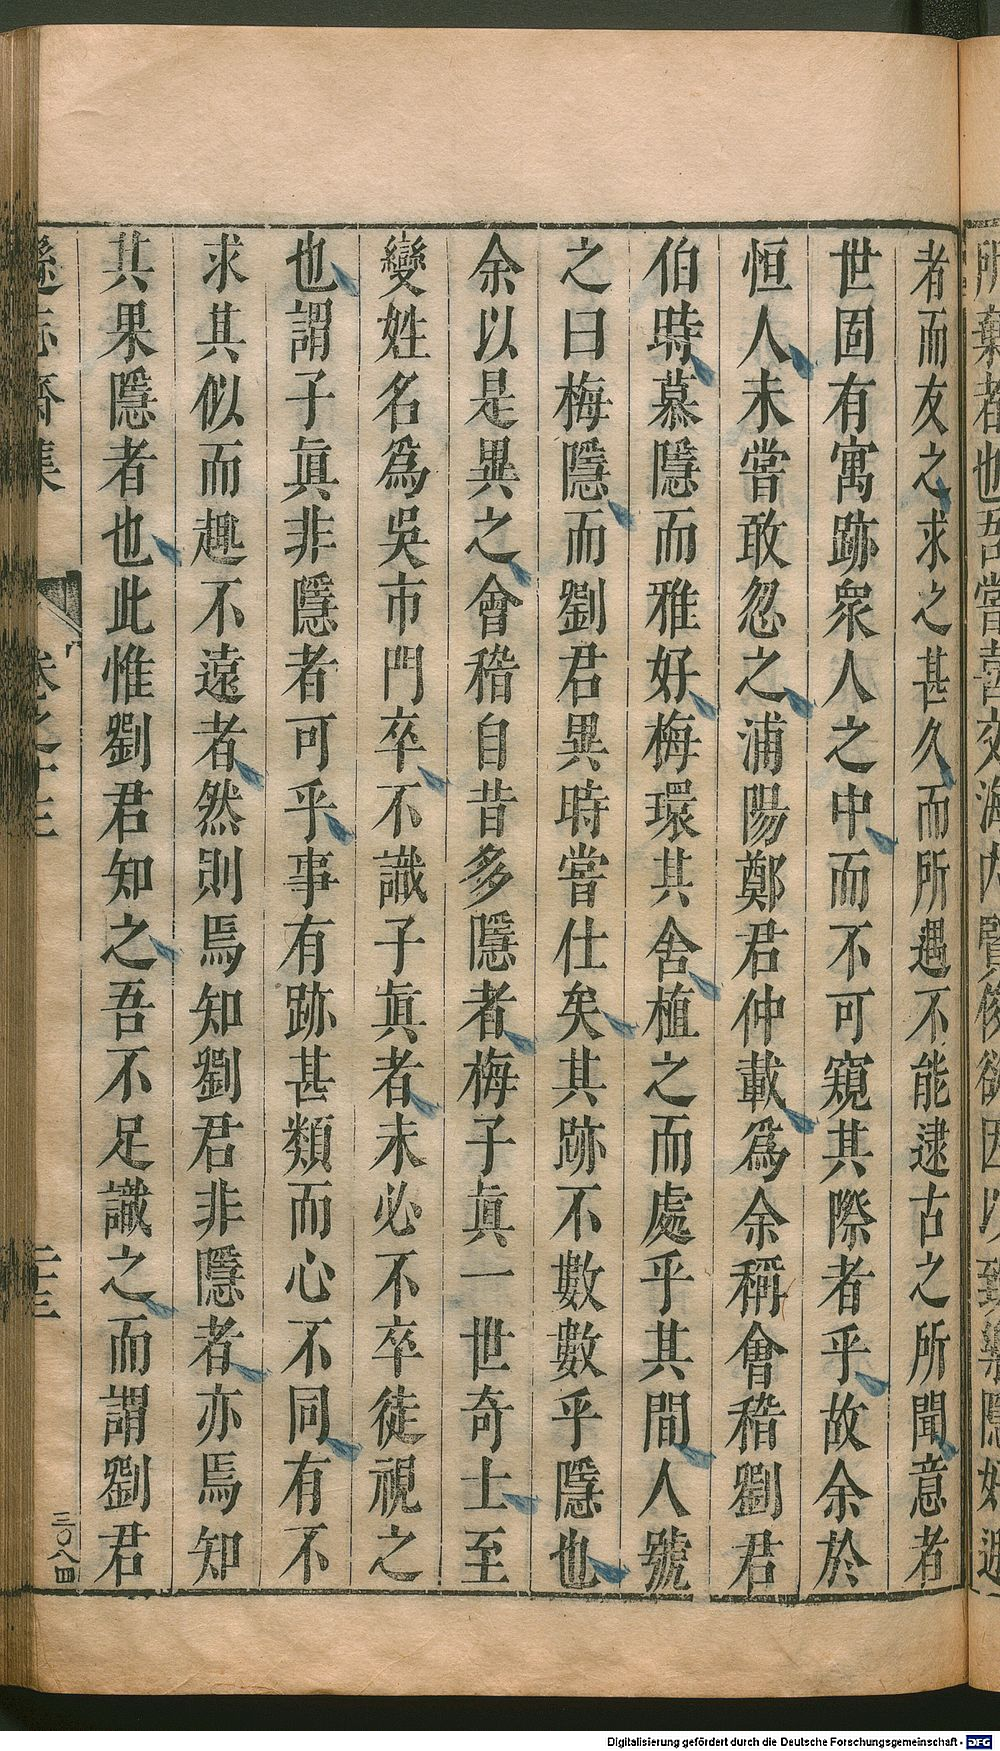 者而友之求之甚久而所遇不能逮古之所聞意者
世固有寓跡衆人之中而不可窺其際者乎故余於
恒人未嘗敢忽之浦陽鄭君仲載爲余稱會稽劉君
伯時慕隱而雅好梅環其舍植之而處乎其間人號
之曰梅隱而劉君異時嘗仕矣其跡不數數乎隱也
余以是異之會稽自昔多隱者梅子眞一世奇士至
變姓名爲吳市門卒不識子眞者未必不卒徒視之
也謂子眞非隱者可乎事有跡甚類而心不同有不
求其似而趣不遠者然則焉知劉君非隱者亦焉知
其果隱者也此惟劉君知之吾不足識之而謂劉君
三〇八四
Digitalisierung gefördert durch die Deutsche Forschungsgemeinschaft - DFG